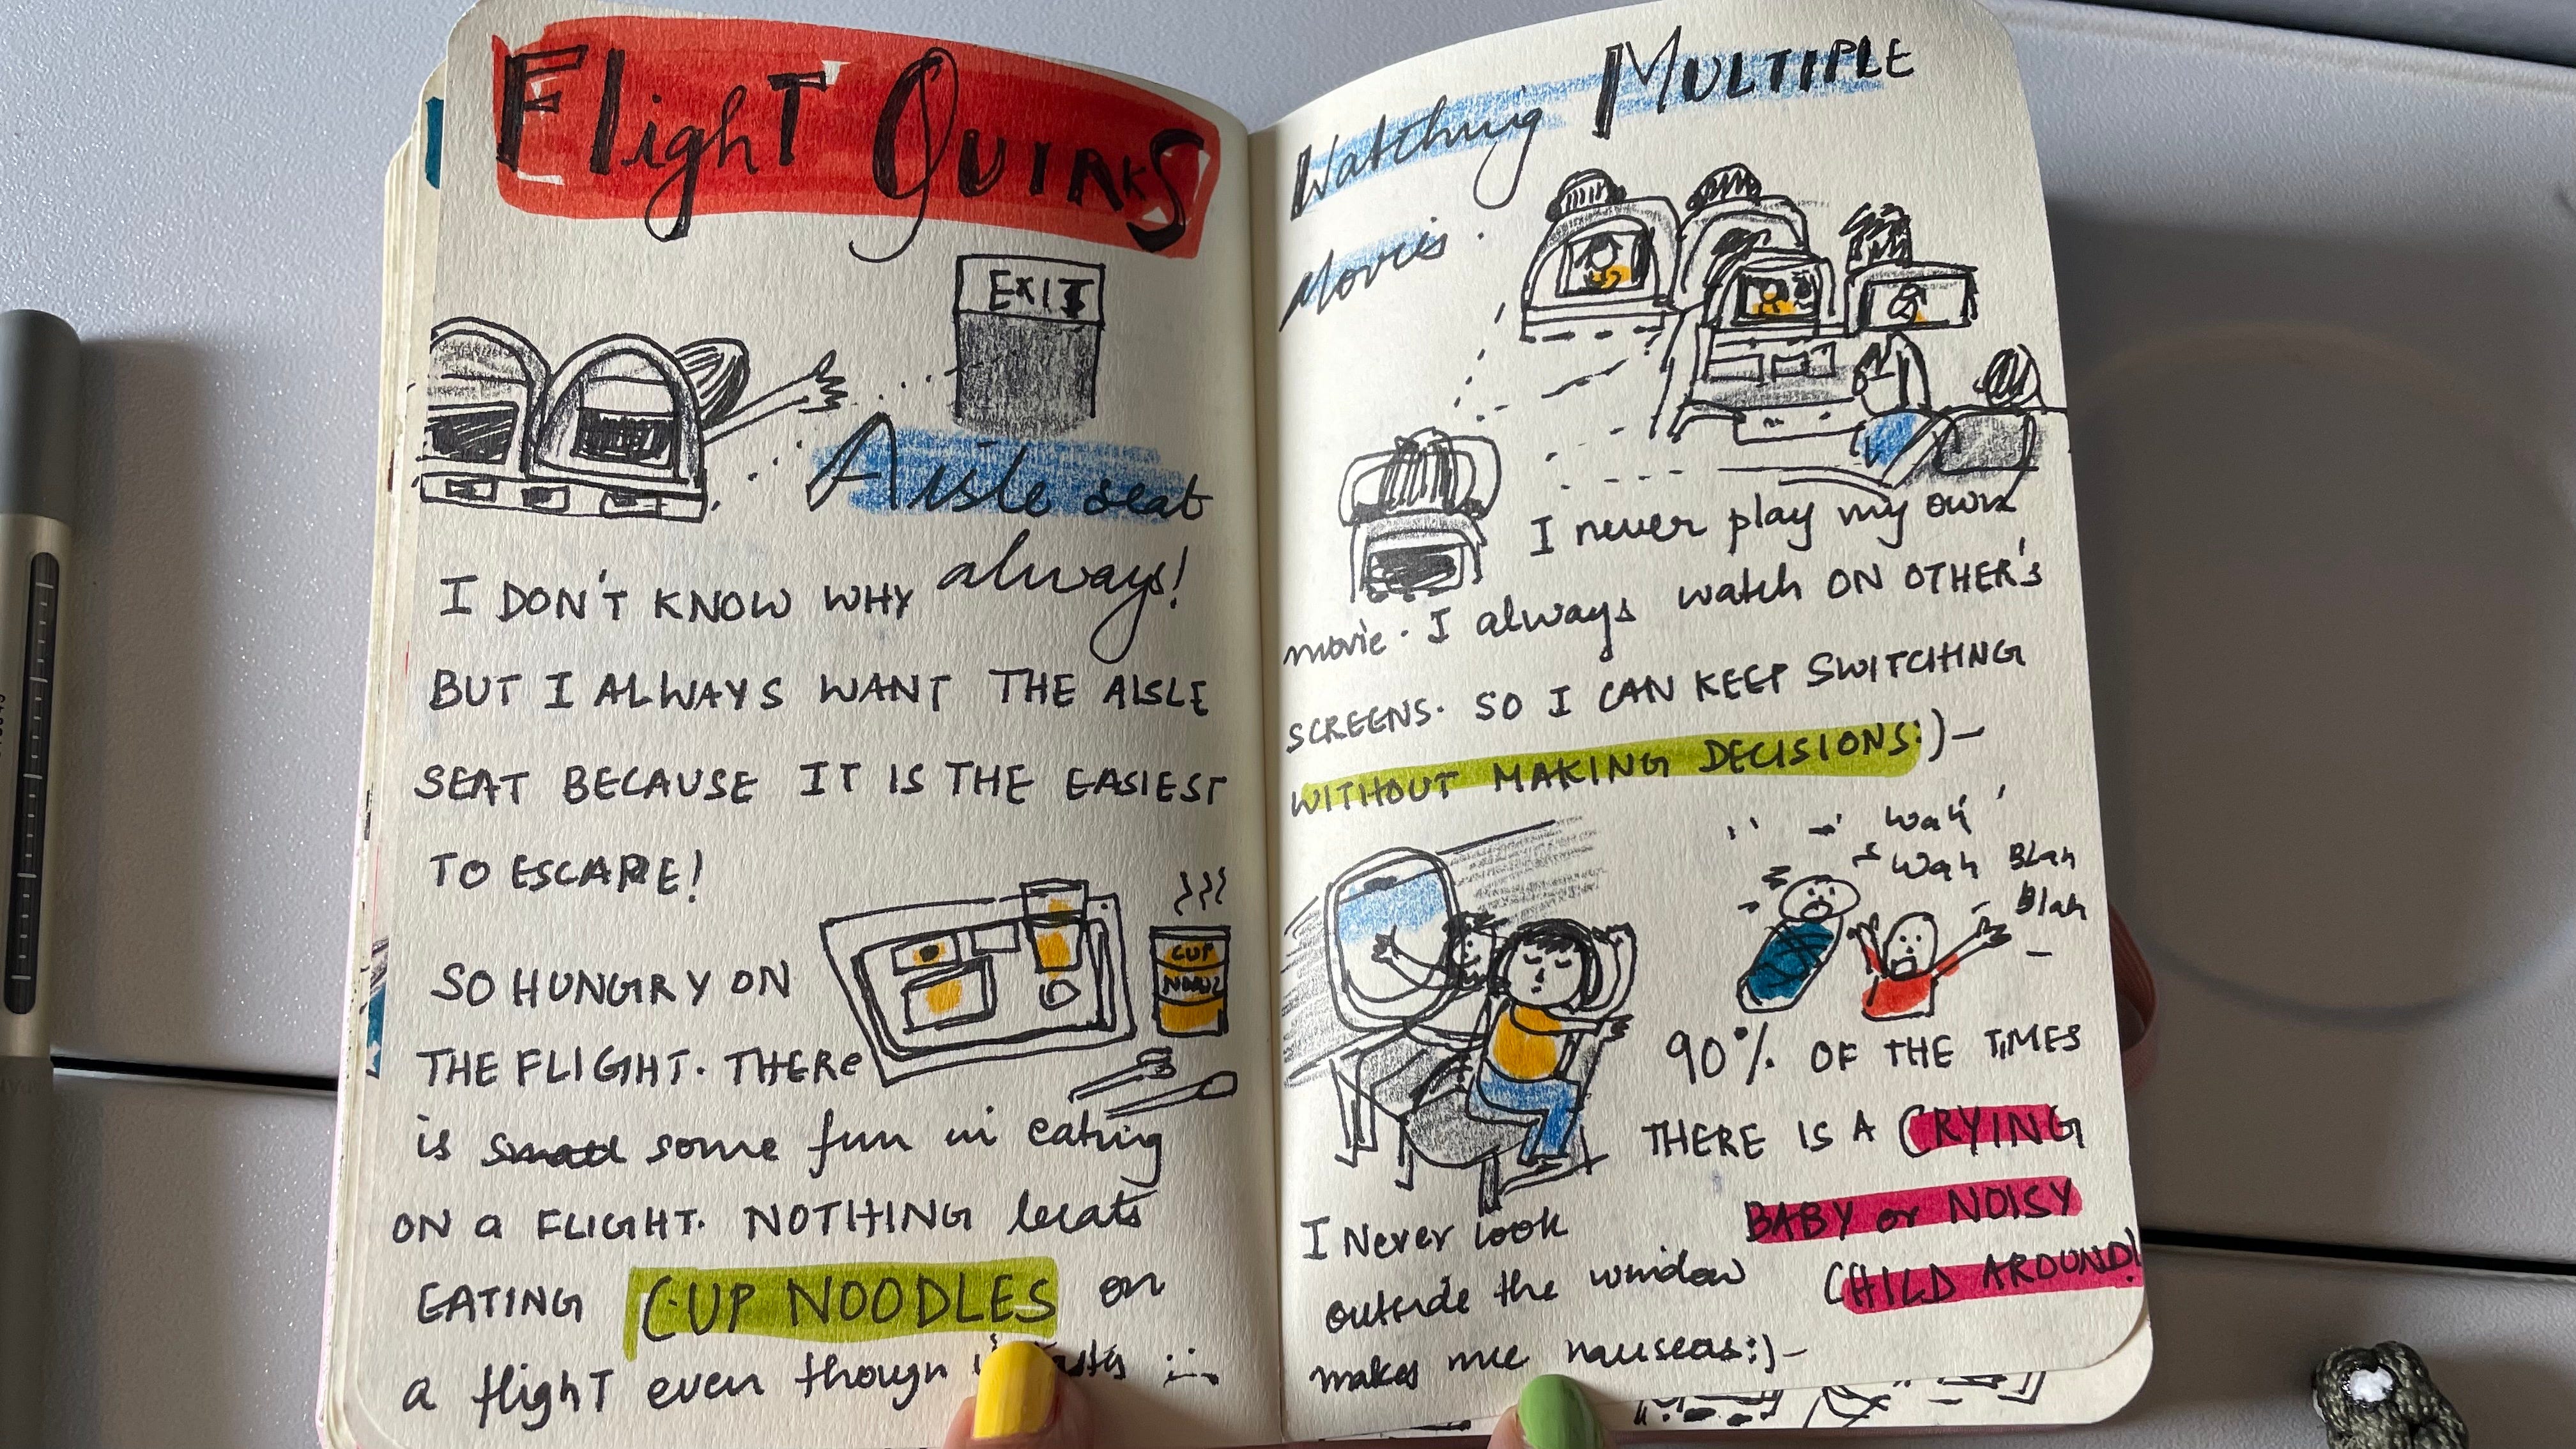 Flight Quirks
EXIT
Aisle seat
always!
I DON'T KNOW WHY
BUT I ALWAYS WANT THE AISLE
SEAT BECAUSE IT IS THE EASIEST
TO ESCAPE!
CUP
SO HUNGRY ON
THE FLIGHT. THERE
is some fun in eating
ON a FLIGHT. NOTHING beats
EATING CUP NOODLES on
a flighT even though
Watching MULTIPLE
Movies.
I never play my own
movie. I always watch ON OTHER'S
SCREENS. SO I CAN KEEP SWITCHING
WITHOUT MAKING DECISIONS:)-
Wah
Wah Blah
Blah
90% OF THE TIMES
THERE IS A CRYING
BABY or NOISY
CHILD AROUND!
I Never look
outside the window
makes me nauseas:)-